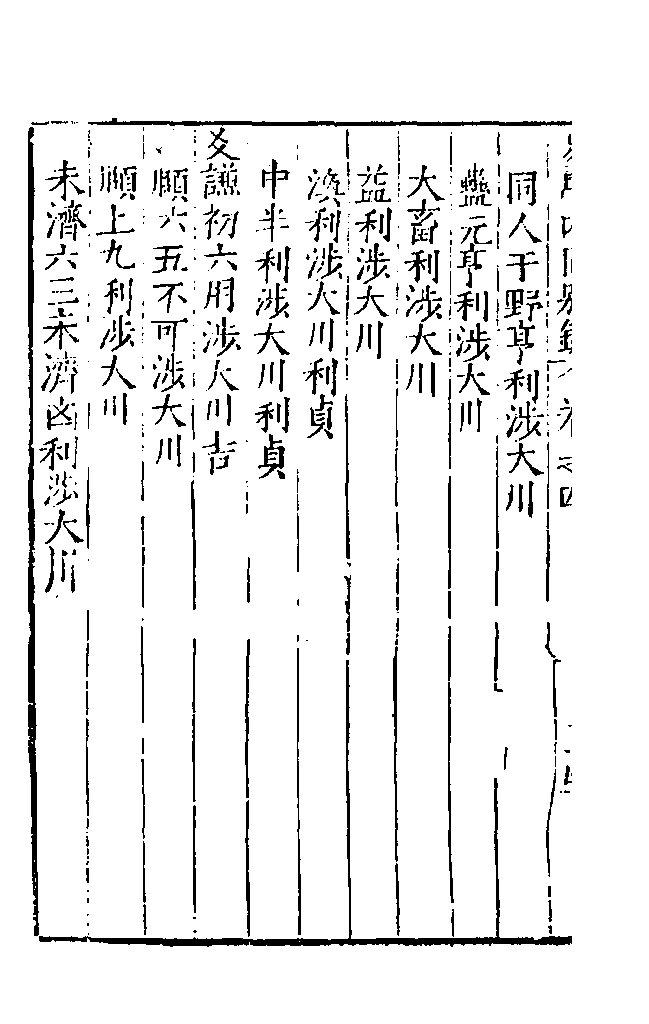 同人于野亨利涉大川
蠱元亨利涉大川
大畜利涉大川
益利涉大川
渙利涉大川利貞
中半利涉大川利貞
爻謙初六用涉大川吉
頤六五不可涉大川
頤上九利涉大川
未濟六三未濟凶利涉大川